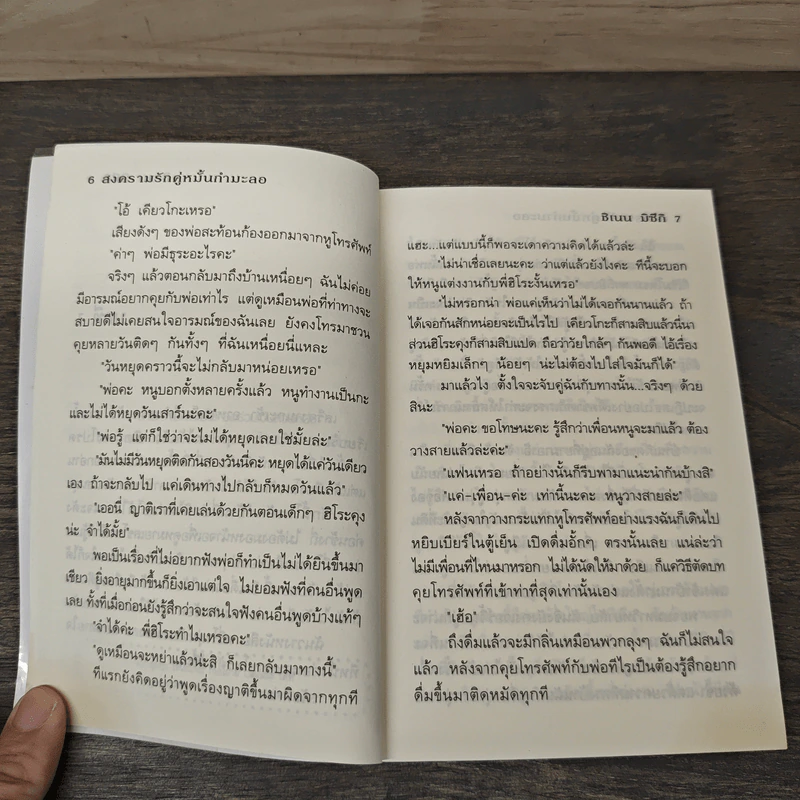 6 สงครามรักคู่หมั้นกำมะลอ
"โอ้ เคียวโกะเหรอ"
เสียงดังๆ ของพ่อสะท้อนก้องออกมาจากหูโทรศัพท์
"ค่าๆ พ่อมีธุระอะไรคะ"
จริงๆ แล้วตอนกลับมาถึงบ้านเหนื่อยๆ ฉันไม่ค่อย
มีอารมณ์อยากคุยกับพ่อเท่าไร แต่ดูเหมือนพ่อที่ท่าทางจะ
สบายดีไม่เคยสนใจอารมณ์ของฉันเลย ยังคงโทรมาชวน
คุยหลายวันติดๆ กันทั้งๆ ที่ฉันเหนื่อยนี่แหละ
"วันหยุดคราวนี้จะไม่กลับมาหน่อยเหรอ"
"พ่อคะ หนูบอกตั้งหลายครั้งแล้ว หนูทำงานเป็นกะ
และไม่ได้หยุดวันเสาร์นะคะ"
"พ่อรู้ แต่ก็ใช่ว่าจะไม่ได้หยุดเลยใช่มั้ยล่ะ"
"มันไม่มีวันหยุดติดกันสองวันนี่คะ หยุดได้แค่วันเดียว
เอง ถ้าจะกลับไป แค่เดินทางไปกลับก็หมดวันแล้ว"
"เออนี่ ญาติเราที่เคยเล่นด้วยกันตอนเด็กๆ ฮิโระคุง
น่ะ จำได้มั้ย"
พอเป็นเรื่องที่ไม่อยากฟังพ่อก็ทำเป็นไม่ได้ยินขึ้นมา
เชียว ยิ่งอายุมากขึ้นก็ยิ่งเอาแต่ใจ ไม่ยอมฟังที่คนอื่นพูด
เลย ทั้งที่เมื่อก่อนยังรู้สึกว่าจะสนใจฟังคนอื่นพูดบ้างแท้ๆ
"จำได้ค่ะ พี่ฮิโระทำไมเหรอคะ"
"ดูเหมือนจะหย่าแล้วน่ะสิ ก็เลยกลับมาทางนี้"
ทีแรกยังคิดอยู่ว่าพูดเรื่องญาติขึ้นมาผิดจากทุกที
ชิเนน มิซึกิ 7
แฮะ...แต่แบบนี้ก็พอจะเดาความคิดได้แล้วล่ะ
"ไม่น่าเชื่อเลยนะคะ ว่าแต่แล้วยังไงคะ ทีนี้จะบอก
ให้หนูแต่งงานกับพี่ฮิโระงั้นเหรอ"
"ไม่หรอกน่า พ่อแค่เห็นว่าไม่ได้เจอกันนานแล้ว ถ้า
ได้เจอกันสักหน่อยจะเป็นไรไป เคียวโกะก็สามสิบแล้วนี่นา
ส่วนฮิโระคุงก็สามสิบแปด ถือว่าวัยใกล้ๆ กันพอดี ไอ้เรื่อง
หยุมหยิมเล็กๆ น้อยๆ น่ะไม่ต้องไปใส่ใจมันก็ได้"
มาแล้วไง ตั้งใจจะจับคู่ฉันกับทางนั้น...จริงๆ ด้วย
สินะ
"พ่อคะ ขอโทษนะคะ รู้สึกว่าเพื่อนหนูจะมาแล้ว ต้อง
วางสายแล้วล่ะค่ะ"
"แฟนเหรอ ถ้าอย่างนั้นก็รีบพามาแนะนำกันบ้างสิ"
"แค่-เพื่อน-ค่ะ เท่านี้นะคะ หนูวางสายล่ะ"
หลังจากวางกระแทกหูโทรศัพท์อย่างแรงฉันก็เดินไป
หยิบเบียร์ในตู้เย็น เปิดดื่มอั้กๆ ตรงนั้นเลย แน่ล่ะว่า
ไม่มีเพื่อนที่ไหนมาหรอก ไม่ได้นัดให้มาด้วย ก็แค่วิธีตัดบท
คุยโทรศัพท์ที่เข้าท่าที่สุดเท่านั้นเอง
"เฮ้อ"
ถึงดื่มแล้วจะมีกลิ่นเหมือนพวกลุงๆ ฉันก็ไม่สนใจ
แล้ว หลังจากคุยโทรศัพท์กับพ่อทีไรเป็นต้องรู้สึกอยาก
ดื่มขึ้นมาติดหมัดทุกที